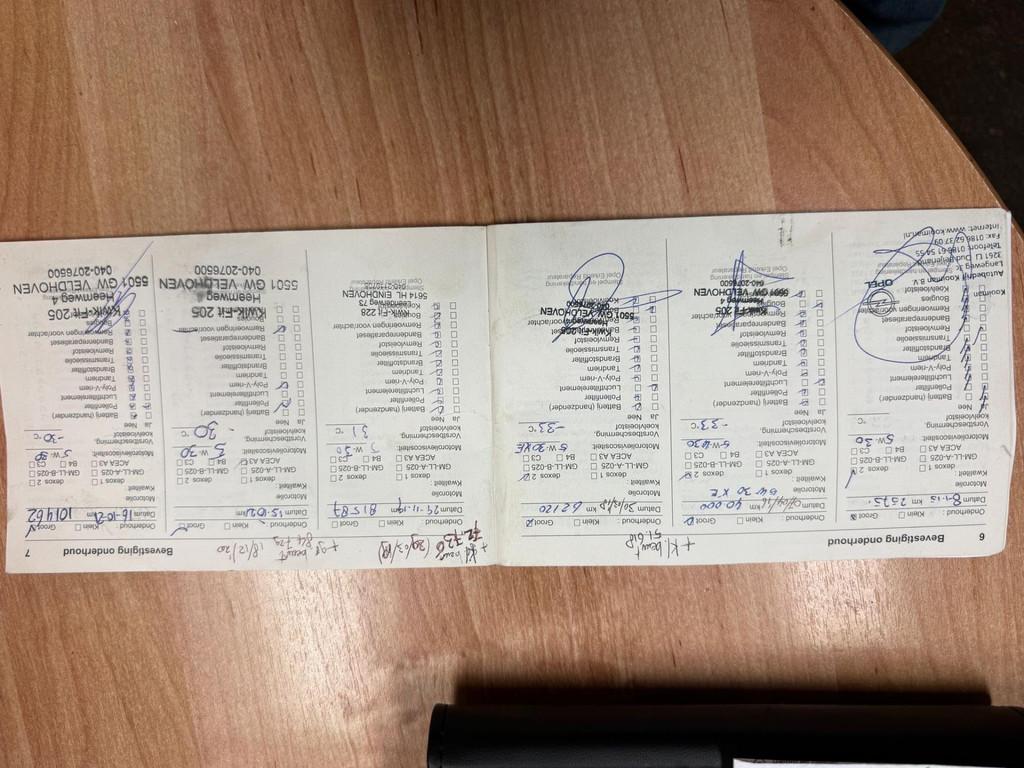 6 Bevestiging onderhoud
+ Kl beurt
51.618
Onderhoud: Klein Groot
Datum 8-1-15 km
Motorolie
Kwaliteit:
dexos 1 dexos 2
GM-LL-A-025 GM-LL-B-025
ACEA A3 B4 C3
Motorolieviscositeit
5 W 30
Vorstbescherming
koelvloeistof °C
Ja Nee
Batterij (handzender)
Pollenfilter
Luchtfilterelement
Poly-V-riem
Tandriem
Brandstoffilter
Transmissieolie
Remvloeistof
Bandenreparatieset
Remmeringen voor/achter
Bougies
Koelvloeistof
Kooiman
OPEL
Autobedrijf Kooiman B.V.
Langeweg
3261 LJ Oud-Beijerland
Telefoon 0186 61 54 55
Fax: 0186 62 37 09
internet: www.kooiman.nl
Onderhoud: Klein Groot
Datum km 40.000
Motorolie
5W30 XE
Kwaliteit:
dexos 1 dexos 2
GM-LL-A-025 GM-LL-B-025
ACEA A3 B4 C3
Motorolieviscositeit
5-W-30
Vorstbescherming
koelvloeistof -33 °C
Ja Nee
Batterij (handzender)
Pollenfilter
Luchtfilterelement
Poly-V-riem
Tandriem
Brandstoffilter
Transmissieolie
Remvloeistof
Bandenreparatieset
Kwik-Fit 205
Heemweg 4
5501 GW VELDHOVEN
040-2076500
Onderhoud: Klein Groot
Datum km 62120
Motorolie
Kwaliteit:
dexos 1 dexos 2
GM-LL-A-025 GM-LL-B-025
ACEA A3 B4 C3
Motorolieviscositeit
5 W 30 XE
Vorstbescherming
koelvloeistof -33 °C
Ja Nee
Batterij (handzender)
Pollenfilter
Luchtfilterelement
Poly-V-riem
Tandriem
Brandstoffilter
Transmissieolie
Remvloeistof
Bandenreparatieset
Kwik-Fit 205
Heemweg 4
5501 GW VELDHOVEN
040-2076500
Bevestiging onderhoud 7
+ beurt
72.736 (29/03/19)
+ gr beurt 18/12/'20
84723
Onderhoud: Klein Groot
Datum 29-11-19 km 81587
Motorolie
Kwaliteit:
dexos 1 dexos 2
GM-LL-A-025 GM-LL-B-025
ACEA A3 B4 C3
Motorolieviscositeit
5 W-30
Vorstbescherming
koelvloeistof 31 °C
Ja Nee
Batterij (handzender)
Pollenfilter
Luchtfilterelement
Poly-V-riem
Tandriem
Brandstoffilter
Transmissieolie
Remvloeistof
Bandenreparatieset
Remmeringen voor/achter
Kwik-Fit 228
5614 HL EINDHOVEN
Onderhoud: Klein Groot
Datum km
Motorolie
Kwaliteit:
dexos 1 dexos 2
GM-LL-A-025 GM-LL-B-025
ACEA A3 B4 C3
Motorolieviscositeit
5 W 30
Vorstbescherming
koelvloeistof -30 °C
Ja Nee
Batterij (handzender)
Pollenfilter
Luchtfilterelement
Poly-V-riem
Tandriem
Brandstoffilter
Transmissieolie
Remvloeistof
Bandenreparatieset
Remmeringen voor/achter
Kwik-Fit 205
Heemweg 4
5501 GW VELDHOVEN
040-2076500
Onderhoud: Klein Groot
Datum 16-10-2 km 101462
Motorolie
Kwaliteit:
dexos 1 dexos 2
GM-LL-A-025 GM-LL-B-025
ACEA A3 B4 C3
Motorolieviscositeit
5 W 30
Vorstbescherming
koelvloeistof -30 °C
Ja Nee
Batterij (handzender)
Pollenfilter
Luchtfilterelement
Poly-V-riem
Tandriem
Brandstoffilter
Transmissieolie
Remvloeistof
Bandenreparatieset
Remmeringen voor/achter
Bougies
Kwik-Fit 205
Heemweg 4
5501 GW VELDHOVEN
040-2076500